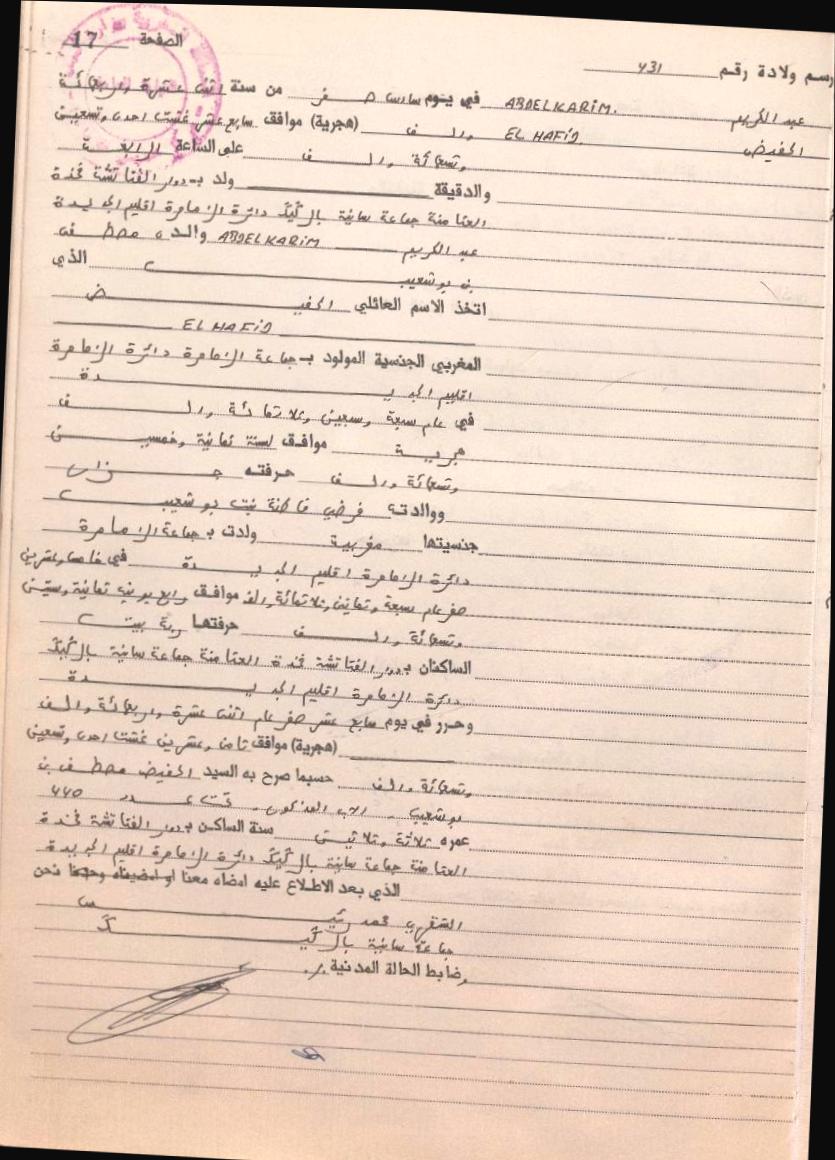 الصفحة 17
رسم ولادة رقم 431
عبد الكريم ABDELKARIM. في يوم سادس صفر من سنة اثنى عشرة واربعمائة
الحفيض EL HAFID والف (هجرية) موافق سابع عشر غشت احدى وتسعين
وتسعمائة والف على الساعة الرابعة
والدقيقة ولد بـ دوار الفتاتشة فخدة
العثامنة جماعة سانية بالركيك دائرة الزمامرة اقليم الجديدة
عبد الكريم ABDELKARIM والده مصطفى
بن بوشعيب الذي
اتخذ الاسم العائلي الحفيض
EL HAFID
المغربي الجنسية المولود بـ جماعة الزمامرة دائرة الزمامرة
اقليم الجديدة
في عام سبعة وسبعين وثلاثمائة والف
هجرية موافق لسنة ثمانية وخمسين
وتسعمائة والف حرفته جزار
ووالدته فرضي فاطنة بنت بوشعيب
جنسيتها مغربية ولدت بـ جماعة الزمامرة
دائرة الزمامرة اقليم الجديدة في خامس وعشرين
صفر عام سبعة وثمانين وثلاثمائة والف موافق رابع يونيه ثمانية وستين
وتسعمائة والف حرفتها ربة بيت
الساكنان بـ دوار الفتاتشة فخدة العثامنة جماعة سانية بالركيك
دائرة الزمامرة اقليم الجديدة
وحرر في يوم سابع عشر صفر عام اثنى عشرة واربعمائة والف
(هجرية) موافق ثامن وعشرين غشت احدى وتسعين
وتسعمائة والف حسبما صرح به السيد الحفيض مصطفى بن
بوشعيب الاب المذكور تحت عدد 440
عمره ثلاثة وثلاثين سنة الساكن بـ دوار الفتاتشة فخدة
العثامنة جماعة سانية بالركيك دائرة الزمامرة اقليم الجديدة
الذي بعد الاطلاع عليه امضاه معنا او امضيناه وحدنا نحن
محمد رئيس
جماعة سانية بالركيك
وضابط الحالة المدنية ./.